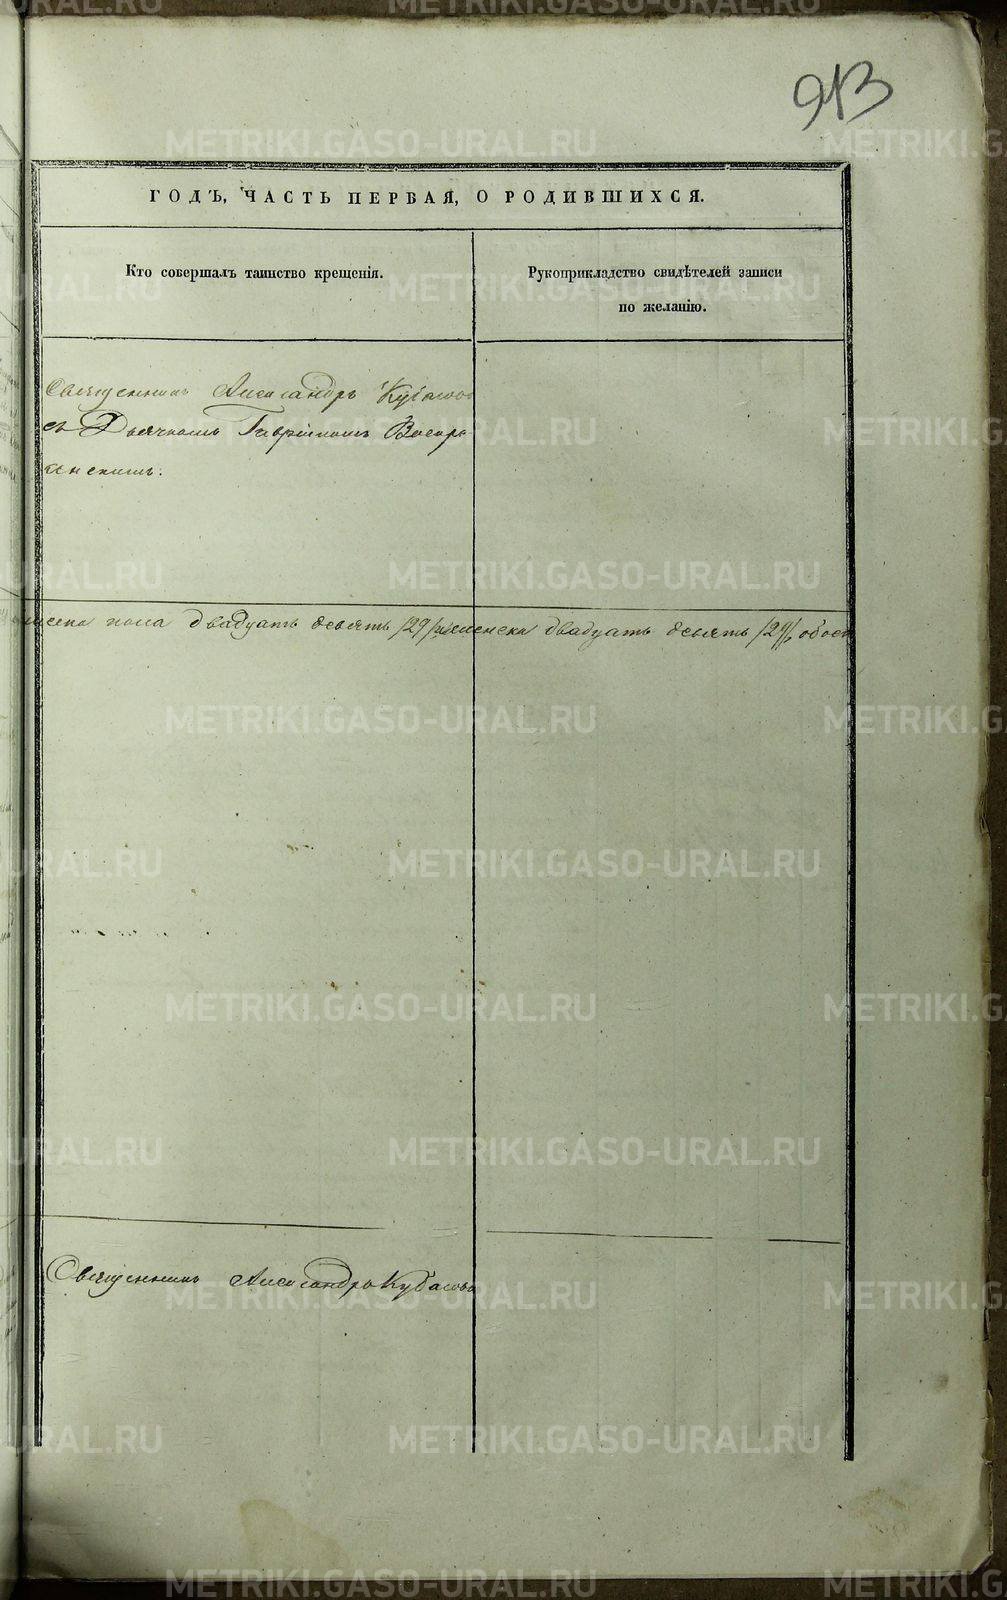 913
ГОДЪ, ЧАСТЬ ПЕРВАЯ, О РОДИВШИХСЯ.
Кто совершалъ таинство крещенія.
Рукоприкладство свидѣтелей записи
по желанію.
Священникъ Александръ Кубасовъ
съ Дьячкомъ Гавріиломъ Воскре
сенскимъ.
мужеска пола двадцать девять /29/ женска двадцать девять /29/, обоего
Священникъ Александръ Кубасовъ
METRIKI.GASO-URAL.RU